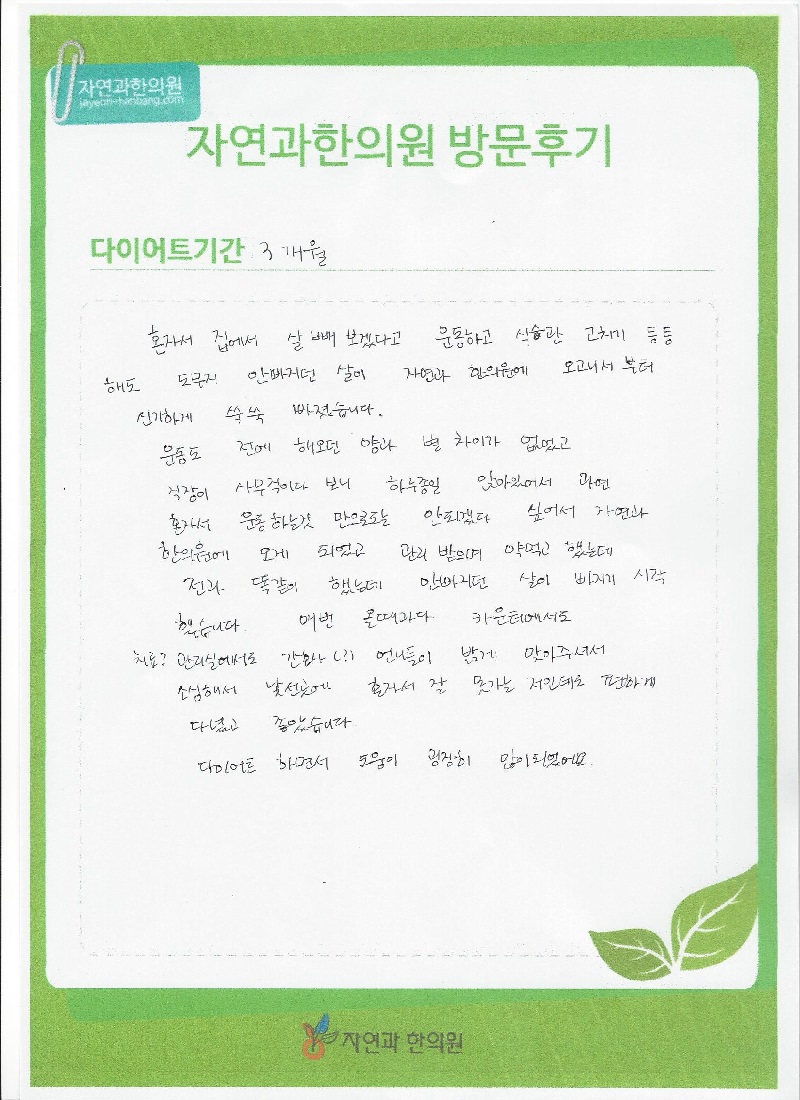 자연과한의원
jayeon-hanbang.com
자연과한의원 방문후기
다이어트기간 3개월
혼자서 집에서 살 빼 보겠다고 운동하고 식습관 고치기 등등
해도 도무지 안빠지던 살이 자연과 한의원에 오고나서 부터
신기하게 쑥쑥 빠졌습니다.
운동도 전에 해오던 양과 별 차이가 없었고
직장이 사무직이다 보니 하루종일 앉아있어서 과연
혼자서 운동하는것 만으로도는 안되겠다 싶어서 자연과
한의원에 오게 되었고 관리 받으며 약먹고 했는데
전과 똑같이 했는데 안빠지던 살이 빠지기 시작
했습니다. 매번 올때마다 카운터에서도
치료? 관리실에서도 간호사(?) 언니들이 밝게 맞아주셔서
소심해서 낯선곳에 혼자서 잘 못가는 저인데도 편하게
다녔고 좋았습니다
다이어트 하면서 도움이 굉장히 많이되었어요.
자연과 한의원